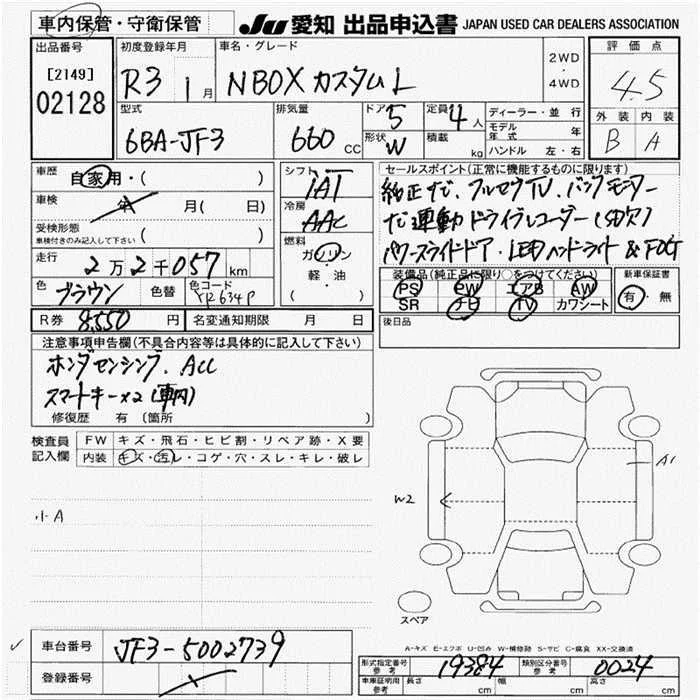 車内保管・守衛保管
JU 愛知 出品申込書 JAPAN USED CAR DEALERS ASSOCIATION
出品番号
[2149]
02128
初度登録年月
R3 1月
車名・グレード
NBOX カスタム L
2WD
・
4WD
評価点
4.5
外装 内装
B A
型式
6BA-JF3
排気量
660 CC
ドア 5
形状 W
定員 4人
積載 kg
ディーラー・並行
モデル年式 年
ハンドル 左・右
車歴 自家用・( )
車検 年 月( 日)
受検形態
車検付きのみ記入して下さい ( )
走行 2万2千057km
色 ブラウン 色替 色コード YR634P
シフト IAT
冷房 AAC
燃料
ガソリン
・
軽・油
( )
セールスポイント(正常に機能するものに限ります)
純正ナビ、フルセグTV、バックモニター
ナビ連動ドライブレコーダー(SD欠)
パワースライドドア、LEDヘッドライト & FOG
装備品(純正品に限り○をつけてください)
PS PW エアB AW
SR ナビ TV カワシート
新車保証書
有・無
R券 8,550円 名変通知期限 月 日
後日品
注意事項申告欄(不具合内容等は具体的に記入して下さい)
ホンダセンシング、ACC
スマートキー×2(車内)
修復歴 有 (箇所 )
検査員記入欄
FW キズ・飛石・ヒビ割・リペア跡・X要
内装 キズ・汚レ・コゲ・穴・スレ・キレ・破レ
小A
W2
A1
スペア
A-キズ E-エクボ U-凹み W-補修跡 S-サビ C-腐食 XX-交換済
車台番号 JF3-5002739
登録番号
形式指定番号 参考 19384 類別区分番号 参考 0024
車庫証明用 参考 長さ cm 幅 cm 高さ cm